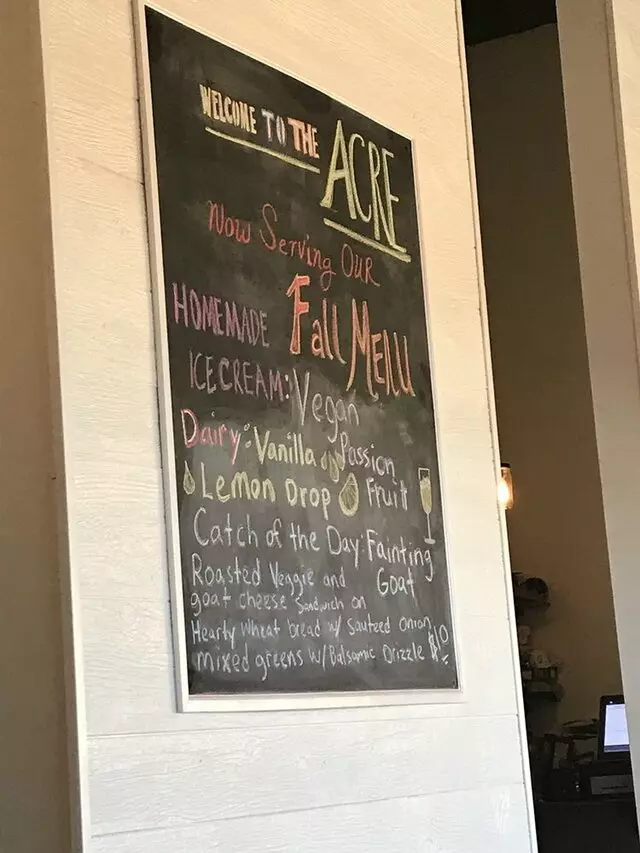 WELCOME TO THE
ACRE
Now Serving OUR
Fall MENU
HOMEMADE
ICECREAM: Vegan
Dairy: Vanilla Passion
Lemon Drop Fruit
Catch of the Day: Fainting
Goat
Roasted Veggie and
goat cheese Sandwich on
Hearty Wheat bread w/ Sauteed Onion,
mixed greens w/ Balsamic Drizzle $10